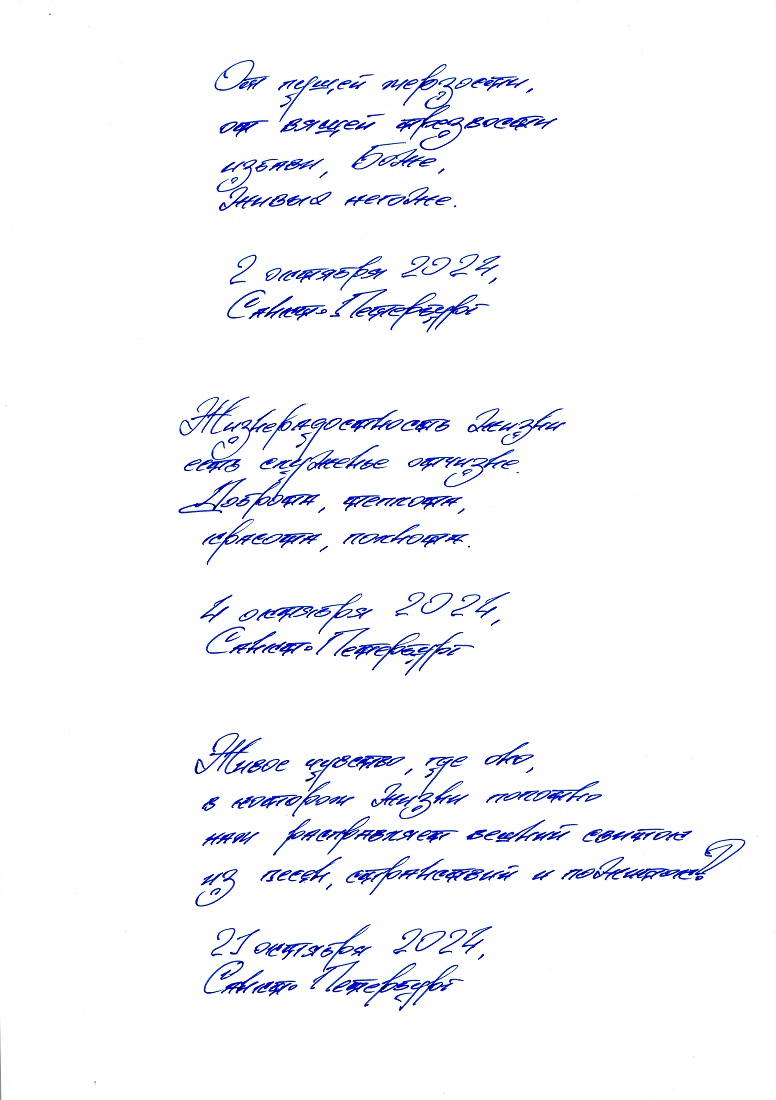 От пущей мерзости,
от вящей трезвости
избави, Боже,
живых негоже.
2 октября 2024,
Санкт-Петербург
Жизнерадостность жизни
есть служенье отчизне.
Доброта, теплота,
красота, полнота.
4 октября 2024,
Санкт-Петербург
Живое чувство, где оно,
в котором жизни полотно
нам расправляет вешний свиток
из песен, странствий и пожиток?
21 октября 2024,
Санкт-Петербург